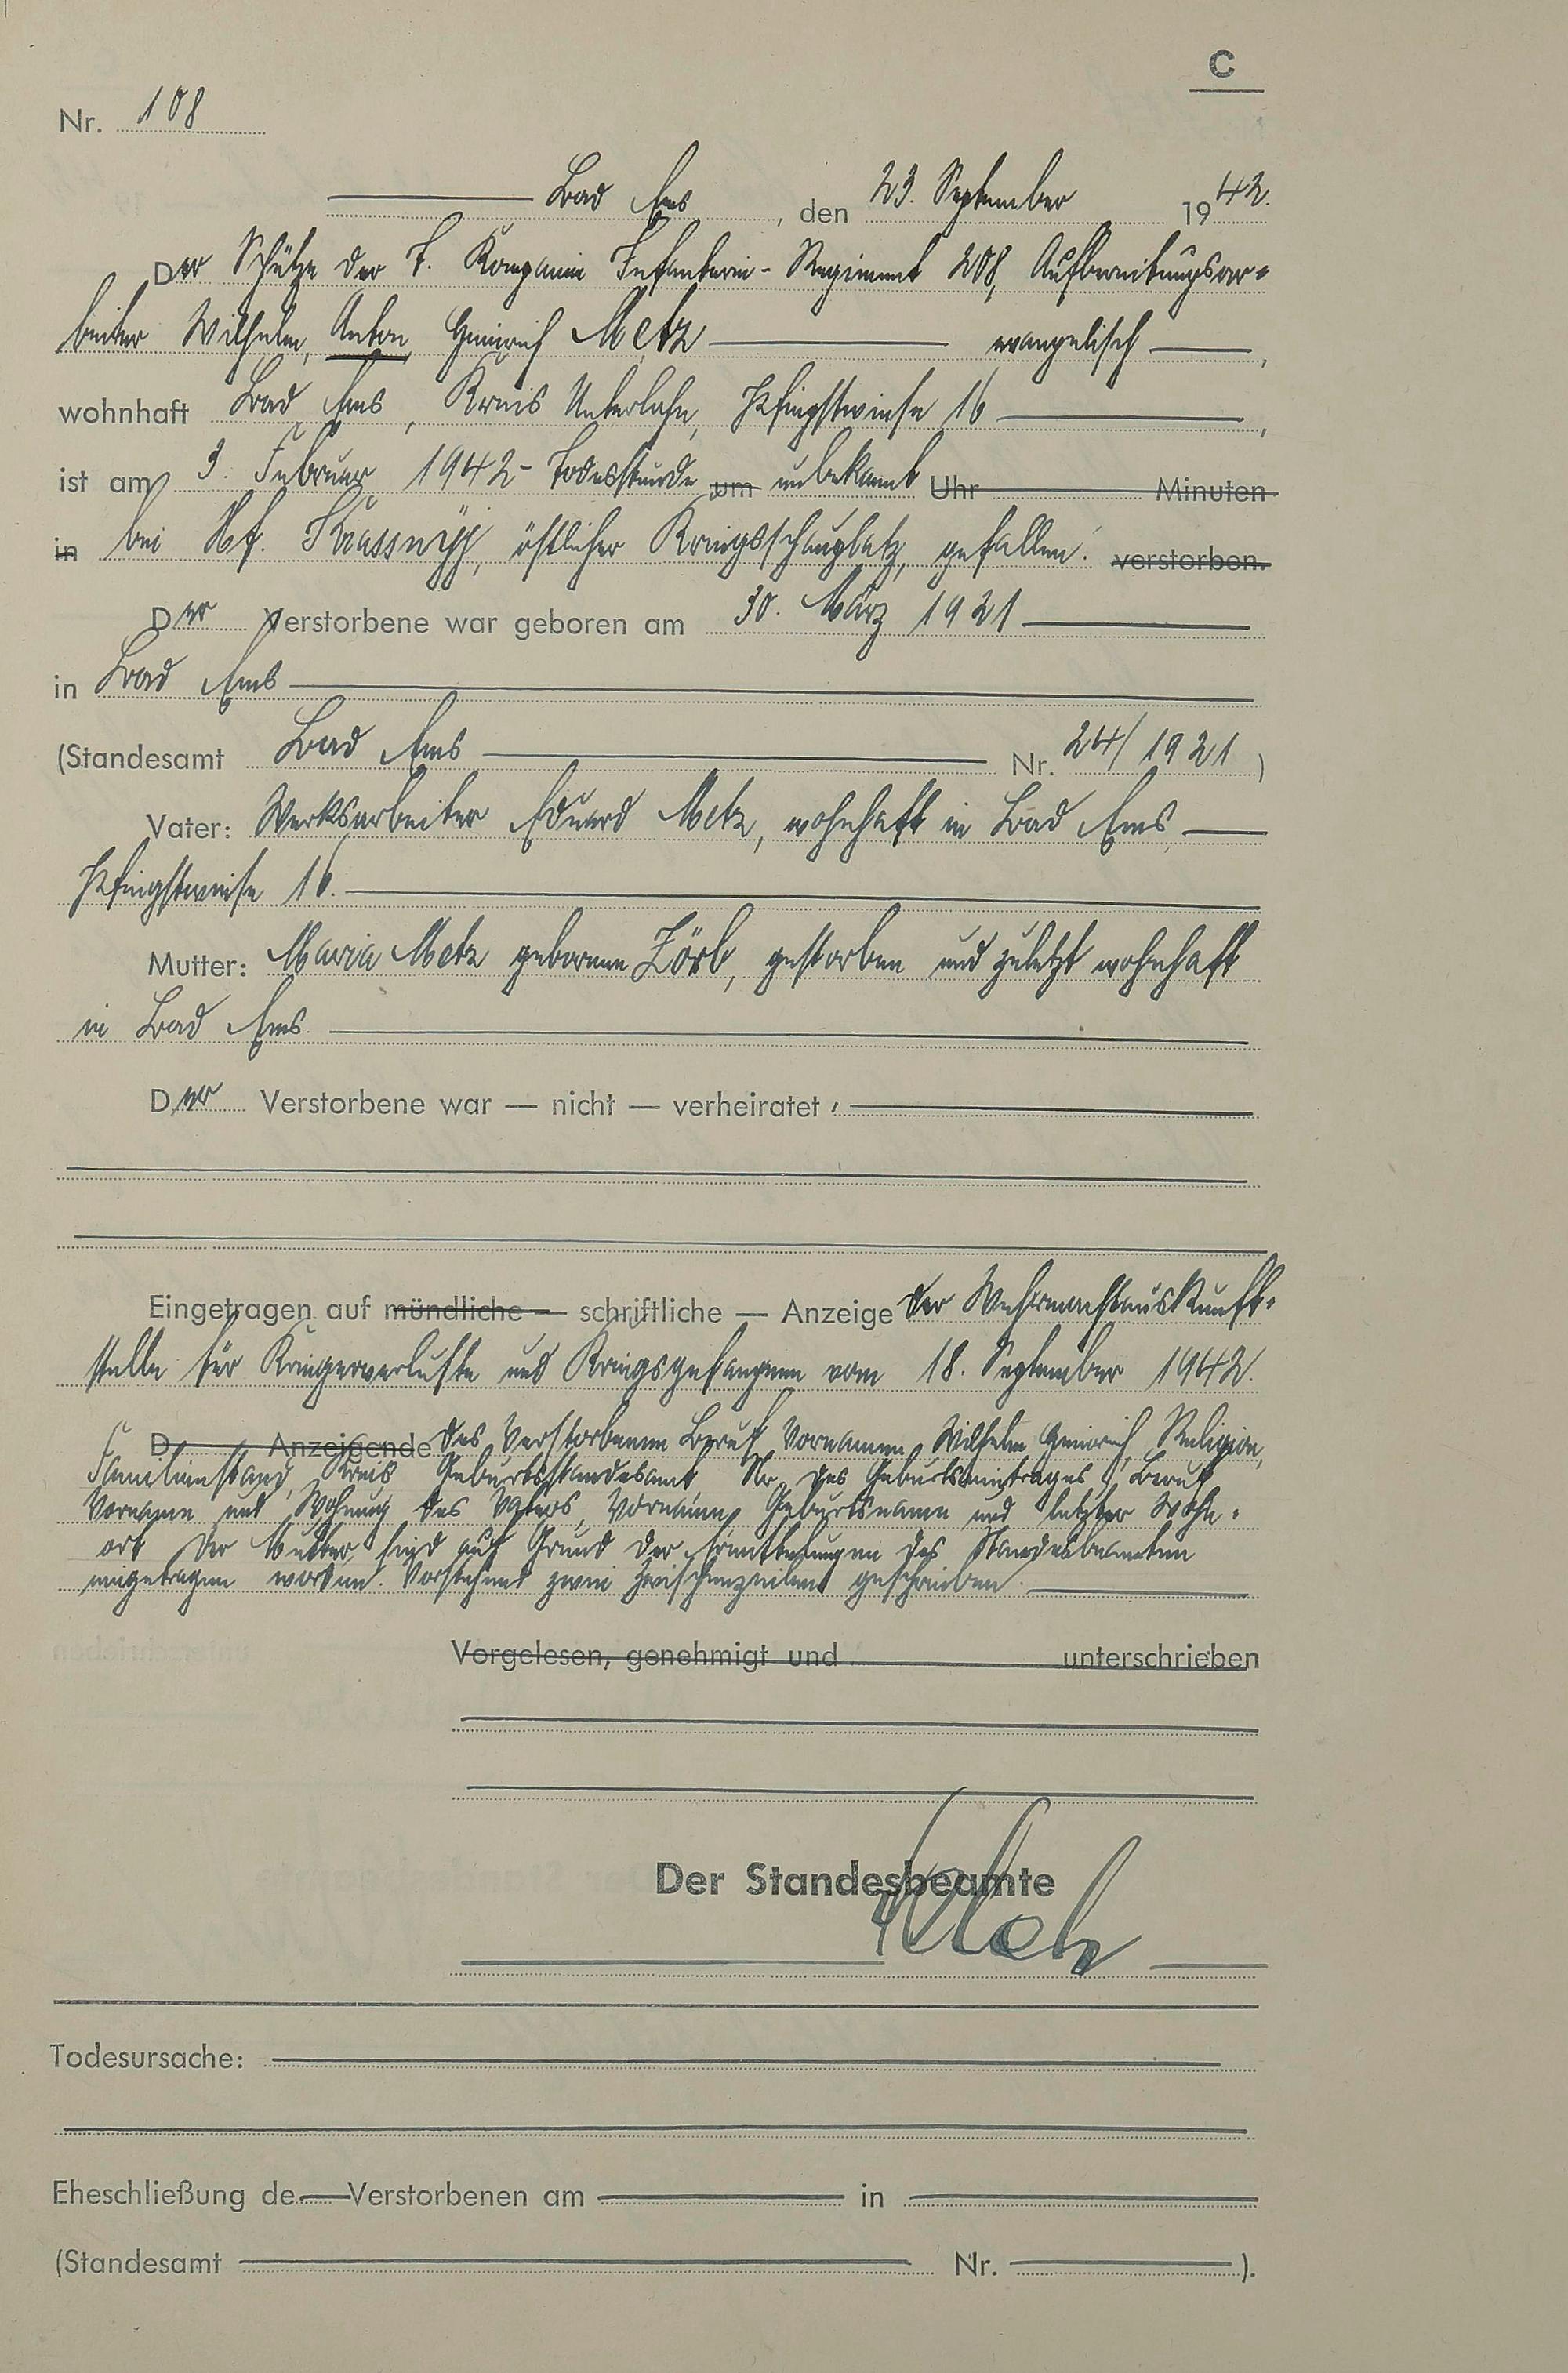 C
Nr. 108
Bad Ems, den 23. September 1942.
Der Schütze der 7. Kompanie Infanterie-Regiment 208, Aufbereitungsar-
beiter Wilhelm, Anton, Heinrich Metz evangelisch,
wohnhaft Bad Ems, Kreis Unterlahn, Pfingstwiese 16,
ist am 3. Februar 1942 - Todesstunde um unbekannt Uhr Minuten
in bei Hf. Krassnyj, östlicher Kriegsschauplatz, gefallen. verstorben.
Der Verstorbene war geboren am 30. März 1921
in Bad Ems
(Standesamt Bad Ems Nr. 24/1921)
Vater: Werksarbeiter Eduard Metz, wohnhaft in Bad Ems
Pfingstwiese 16.
Mutter: Maria Metz geborene Zörb, gestorben und zuletzt wohnhaft
in Bad Ems.
Der Verstorbene war — nicht — verheiratet,
Eingetragen auf mündliche — schriftliche — Anzeige der Wehrmachtauskunft-
stelle für Kriegerverluste und Kriegsgefangene vom 18. September 1942.
D Anzeigende des Verstorbenen Beruf, Vornamen, Wilhelm Heinrich, Religion,
Familienstand, Kreis, Geburtsstandesamt, Nr. des Geburtseintrages, Beruf,
Vorname und Wohnung des Vaters, Vorname, Geburtsname und letzter Wohn-
ort der Mutter sind auf Grund der Ermittelungen des Standesbeamten
eingetragen worden. Vorstehend zwei Zwischenzeilen geschrieben.
Vorgelesen, genehmigt und unterschrieben
Der Standesbeamte
Todesursache:
Eheschließung de Verstorbenen am in
(Standesamt Nr. ).